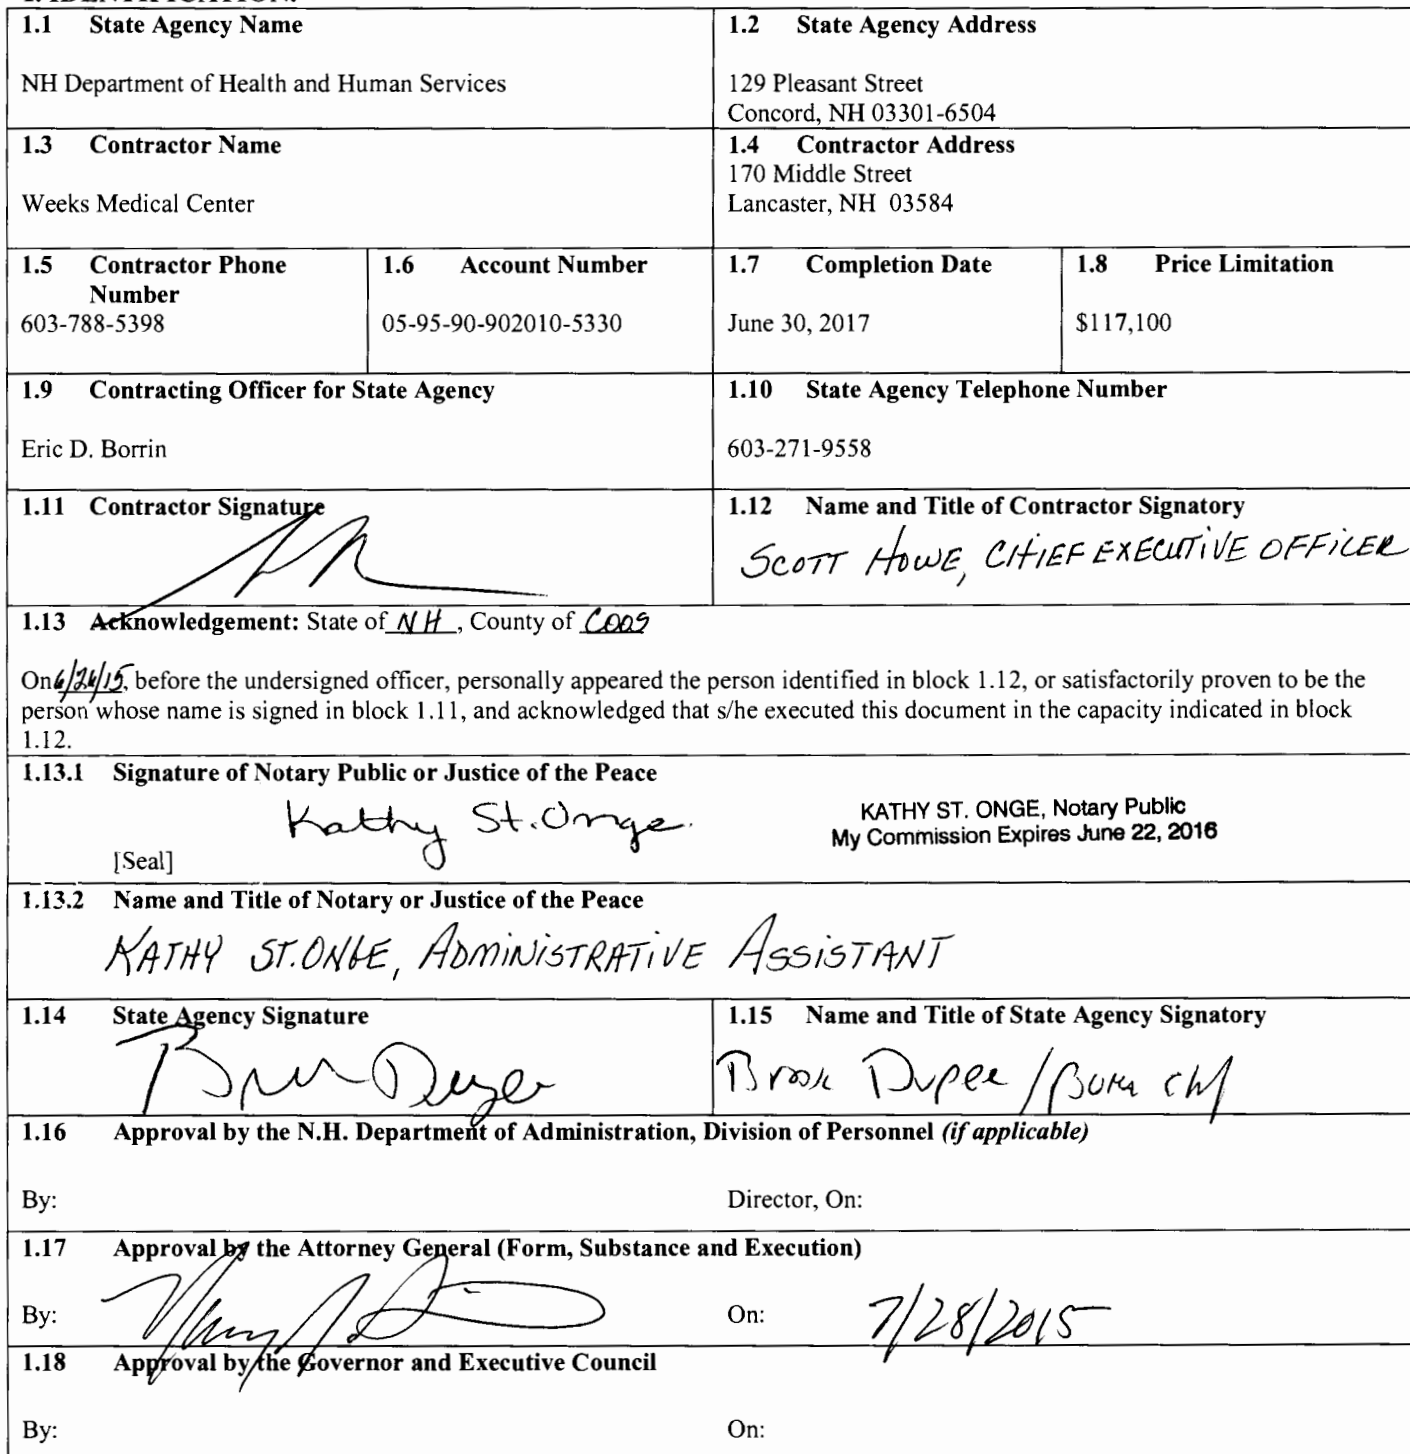 1.1 State Agency Name
NH Department of Health and Human Services
1.2 State Agency Address
129 Pleasant Street
Concord, NH 03301-6504
1.3 Contractor Name
Weeks Medical Center
1.4 Contractor Address
170 Middle Street
Lancaster, NH 03584
1.5 Contractor Phone
Number
603-788-5398
1.6 Account Number
05-95-90-902010-5330
1.7 Completion Date
June 30, 2017
1.8 Price Limitation
$117,100
1.9 Contracting Officer for State Agency
Eric D. Borrin
1.10 State Agency Telephone Number
603-271-9558
1.11 Contractor Signature
1.12 Name and Title of Contractor Signatory
SCOTT HOWE, CHIEF EXECUTIVE OFFICER
1.13 Acknowledgement: State of NH, County of COOS
On 6/26/15, before the undersigned officer, personally appeared the person identified in block 1.12, or satisfactorily proven to be the
person whose name is signed in block 1.11, and acknowledged that s/he executed this document in the capacity indicated in block
1.12.
1.13.1 Signature of Notary Public or Justice of the Peace
Kathy St.Onge.
KATHY ST. ONGE, Notary Public
My Commission Expires June 22, 2016
[Seal]
1.13.2 Name and Title of Notary or Justice of the Peace
KATHY ST.ONGE, ADMINISTRATIVE ASSISTANT
1.14 State Agency Signature
1.15 Name and Title of State Agency Signatory
Brook Dupee /
1.16 Approval by the N.H. Department of Administration, Division of Personnel (if applicable)
By:
Director, On:
1.17 Approval by the Attorney General (Form, Substance and Execution)
By:
On: 7/28/2015
1.18 Approval by the Governor and Executive Council
By:
On: